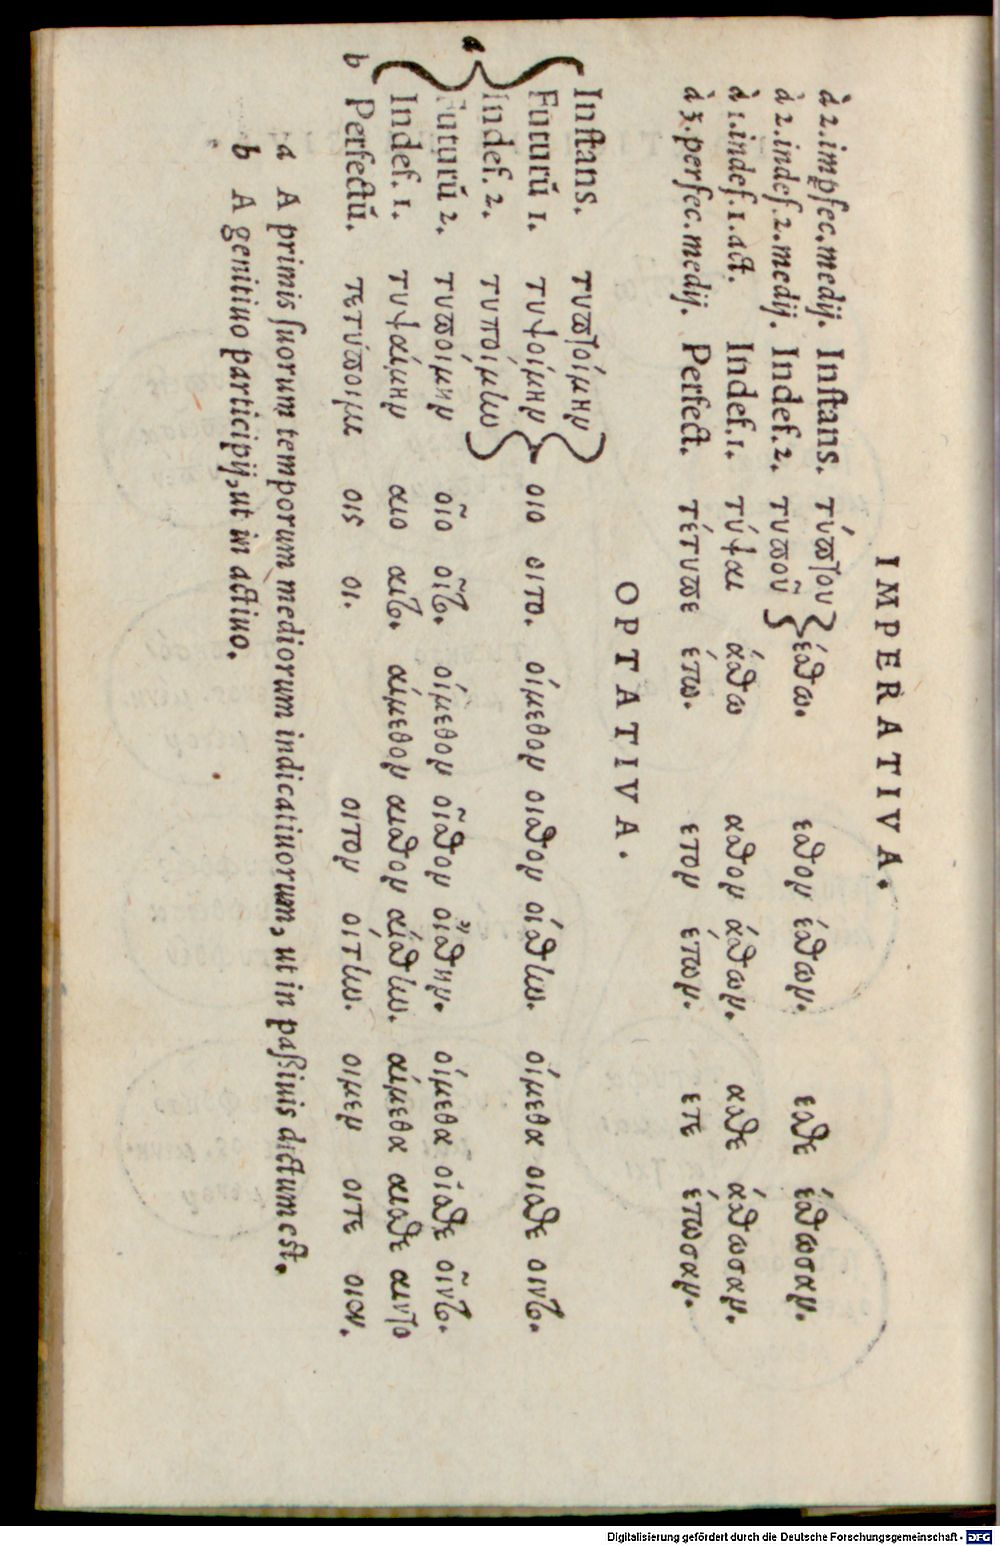 IMPERATIVA.
à 2. impfec. medij. Inſtans. τύπτου
à 2. indef. 2. medij. Indef. 2. τυποῦ } έσθω. εσθον έσθων. εσθε έσθωσαν.
à 1. indef. 1. act. Indef. 1. τύψαι άσθω ασθον άσθων. ασθε άσθωσαν.
à 3. perfec. medij. Perfect. τέτυπε έτω. ετον έτων. ετε έτωσαν.
OPTATIVA.
Inſtans. τυπτοίμην
Futurū 1. τυψοίμην } οιο οιτο. οίμεθον οισθον οίσθην. οίμεθα οισθε οιντο.
Indef. 2. τυποίμην
a Futurū 2. τυποιμην οῖο οῖτο. οίμεθον οῖσθον οίσθην. οίμεθα οῖσθε οῖντο.
Indef. 1. τυψαίμην αιο αιτο. αίμεθον αισθον αίσθην. αίμεθα αισθε αιντο
b Perfectū. τετύποιμι οις οι. οιτον οίτην. οιμεν οιτε οιεν.
a A primis ſuorum temporum mediorum indicatiuorum, ut in paßiuis dictum eſt.
b A genitiuo participij, ut in actiuo.
Digitalisierung gefördert durch die Deutsche Forschungsgemeinschaft - DFG